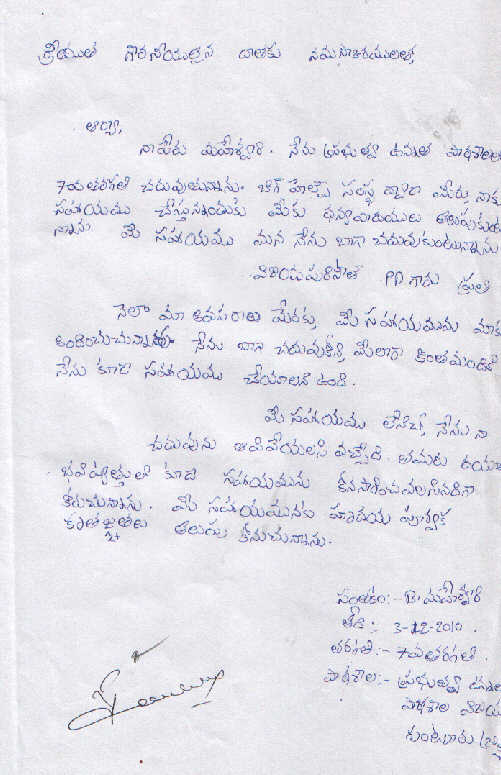 శ్రీయుత గౌరవనీయులైన దాతకు నమస్కారములతో,
ఆర్యా,
నా పేరు మహేశ్వరి. నేను ప్రభుత్వ ఉన్నత పాఠశాలలో
7వ తరగతి చదువుతున్నాను. సంస్థ ద్వారా మీరు నాకు
సహాయము చేస్తున్నందుకు మీకు ధన్యవాదములు తెలుపుకుంటు
న్నాను మీ సహాయము వలన నేను బాగా చదువుకుంటున్నాను
PD గారు ప్రతి
నెలా మా అవసరాల మేరకు, మీ సహాయమును మాకు
నేను బాగా చదువుకొని మీలాగా కొంతమందికి
నేను కూడా సహాయము చేయాలని ఉంది.
మీ సహాయము లేనిచో, నేను నా
చదువును ఆపివేయాలసి వచ్చేది. తమరు దయతో
భవిష్యత్తులో కూడా సహాయమును కొనసాగించవలసినదిగా
కోరుచున్నాను. మీ సహాయమునకు హృదయ పూర్వక
కృతజ్ఞతలు
సంతకం:- B. మహేశ్వరి
తేది:- 3-12-2010.
తరగతి:- 7వ తరగతి.
పాఠశాల:- ప్రభుత్వ ఉన్నత
పాఠశాల
గుంటూరు